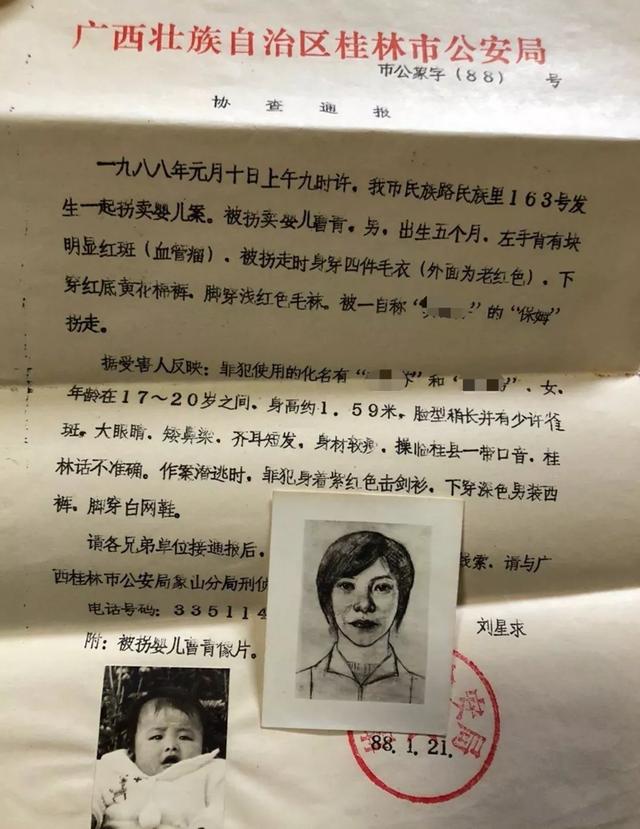 广西壮族自治区桂林市公安局
市公象字(88) 号
协查通报
一九八八年元月十日上午九时许，我市民族路民族里163号发
生一起拐卖婴儿案。被拐卖婴儿曹青。男，出生五个月，左手背有块
明显红斑(血管瘤)，被拐走时身穿四件毛衣(外面为老红色)，下
穿红底黄花棉裤，脚穿浅红色毛袜。被一自称“ ”的“保姆”
拐走。
据受害人反映：罪犯使用的化名有“ ”和“ ，女，
年龄在17～20岁之间，身高约1.59米，脸型稍长并有少许雀
斑。大眼睛，矮鼻梁，齐耳短发，身材较瘦，操临桂县一带口音，桂
林话不准确。作案潜逃时，罪犯身着紫红色击剑衫，下穿深色男装西
裤，脚穿白网鞋。
请各兄弟单位接通报后， 线索，请与广
西桂林市公安局象山分局刑侦
电话号码：335114 刘星求
附：被拐婴儿曹青像片。
安局
88.1.21.